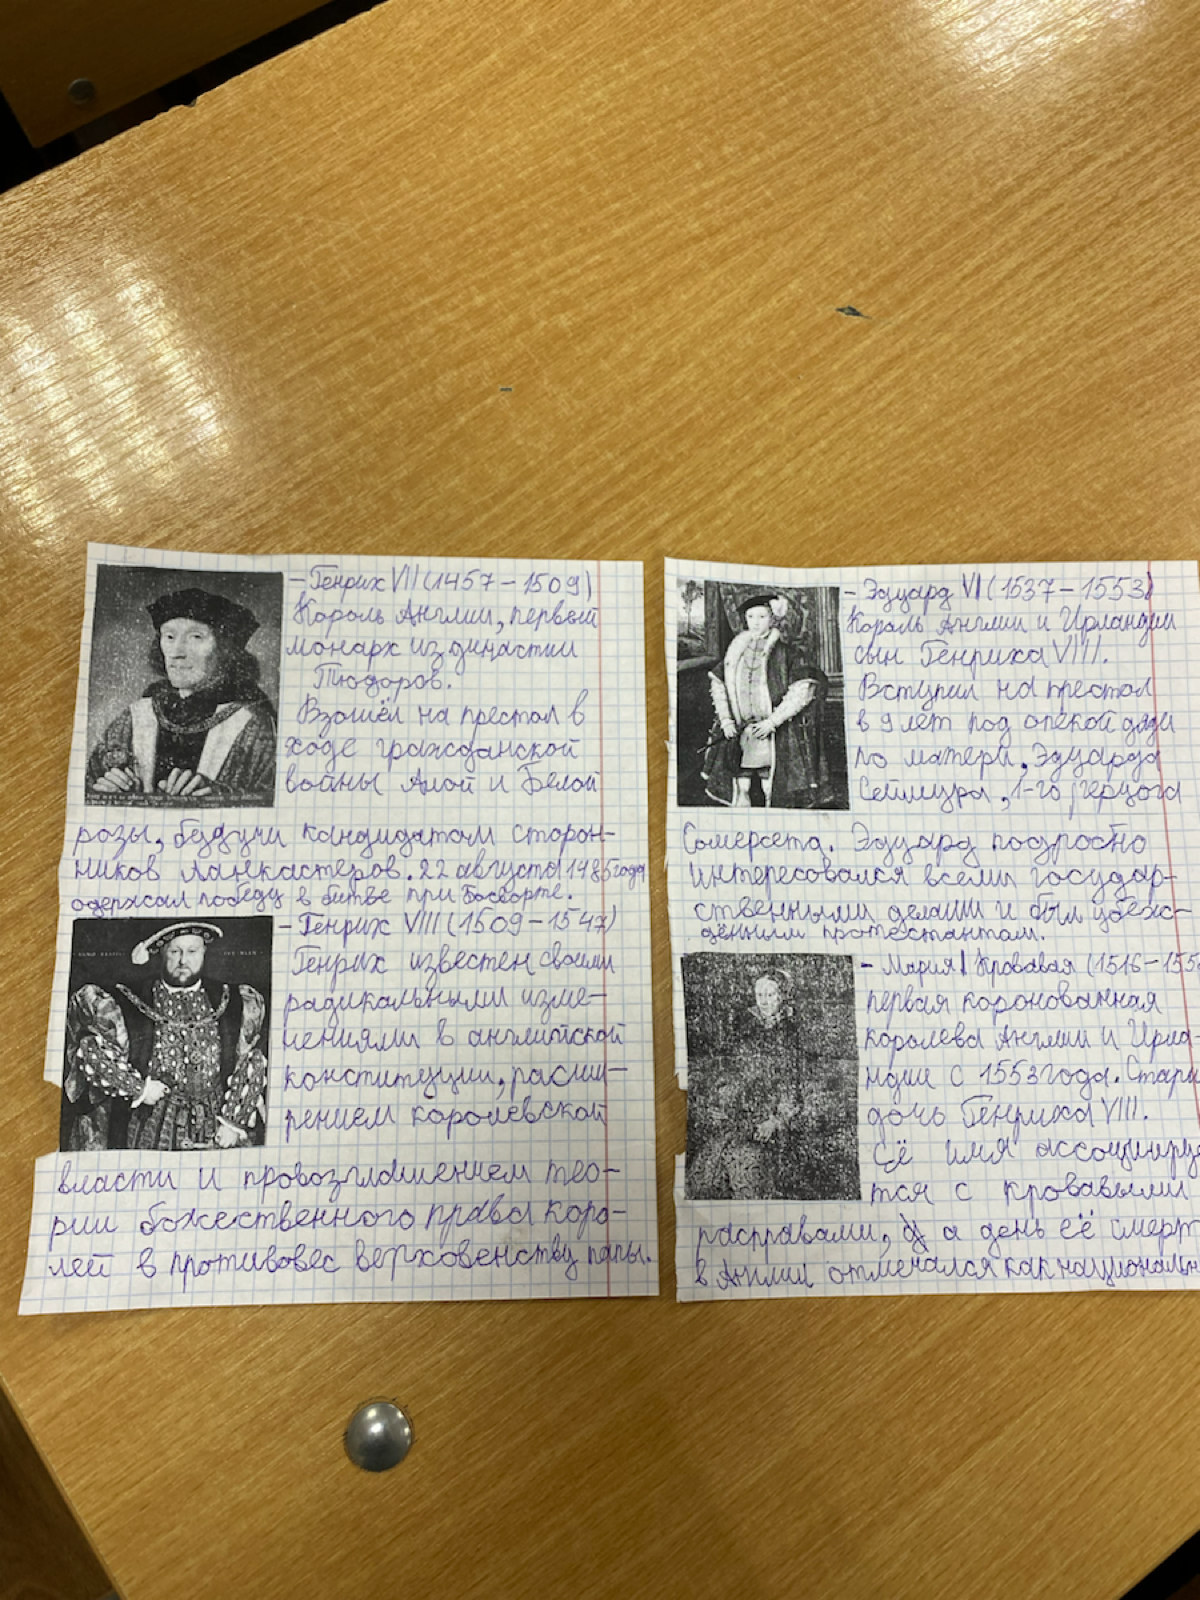 – Генрих VII (1457 – 1509)
Король Англии, первый
монарх из династии
Тюдоров.
Взошёл на престол в
ходе гражданской
войны Алой и Белой
розы, будучи кандидатом сторон-
ников Ланкастеров. 22 августа 1485 года
одержал победу в битве при Босворте.
– Генрих VIII (1509 – 1547)
Генрих известен своими
радикальными изме-
нениями в английской
конституции, расши-
рением королевской
власти и провозглашением тео-
рии божественного права коро-
лей в противовес верховенству папы.
– Эдуард VI (1537 – 1553)
Король Англии и Ирландии
сын Генриха VIII.
Вступил на престол
в 9 лет под опекой дяди
по матери, Эдуарда
Сеймура, 1-го герцога
Сомерсета. Эдуард подробно
интересовался всеми государ-
ственными делами и был убеж-
дённым протестантом.
– Мария I Кровавая (1516 – 155
первая коронованная
королева Англии и Ирла-
ндии с 1553 года. Стар
дочь Генриха VIII.
Её имя ассоцииру
тся с кровавыми
расправами, а день её смерт
в Англии отмечался как националь